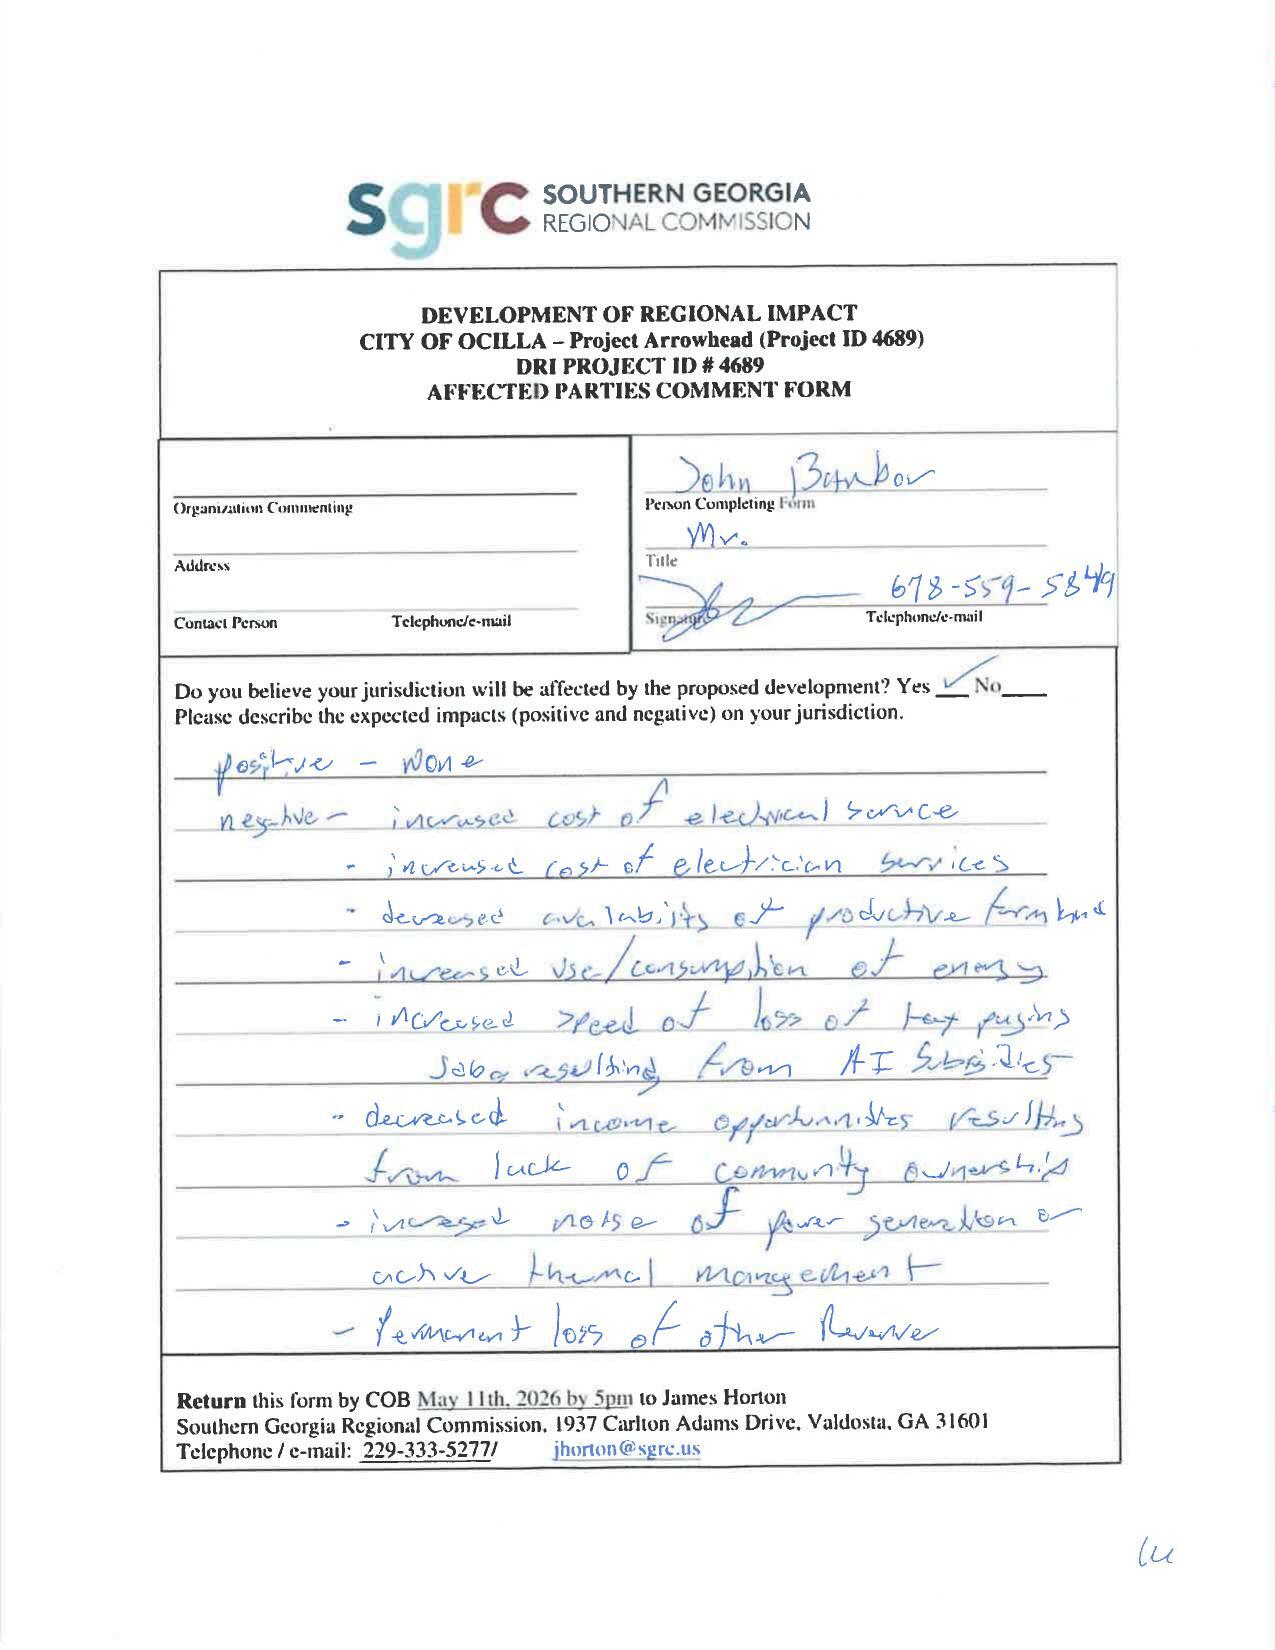 sgrc SOUTHERN GEORGIA
REGIONAL COMMISSION
DEVELOPMENT OF REGIONAL IMPACT
CITY OF OCILLA – Project Arrowhead (Project ID 4689)
DRI PROJECT ID # 4689
AFFECTED PARTIES COMMENT FORM
Organization Commenting
Address
Contact Person Telephone/e-mail
John
Person Completing Form
Mr.
Title
678-559-5849
Signature Telephone/e-mail
Do you believe your jurisdiction will be affected by the proposed development? Yes ✓ No
Please describe the expected impacts (positive and negative) on your jurisdiction.
positive - None
negative - increased cost of electrical service
- increased cost of electrician services
- decreased availability of productive farm land
- increased use/consumption of energy
- increased speed of loss of tax paying
Jobs resulting from AI Subsidies
- decreased income opportunities resulting
from lack of community ownership
- increased noise of power generation or
active thermal management
- Permanent loss of other Revenue
Return this form by COB May 11th, 2026 by 5pm to James Horton
Southern Georgia Regional Commission, 1937 Carlton Adams Drive, Valdosta, GA 31601
Telephone / e-mail: 229-333-5277/ jhorton@sgrc.us